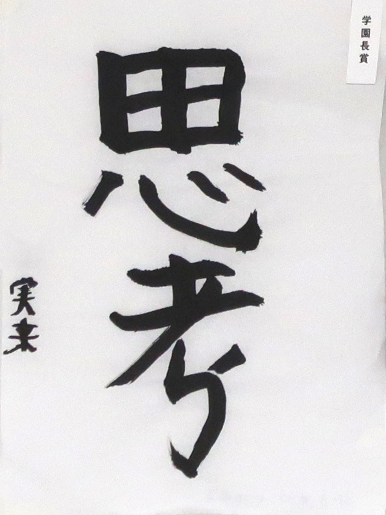 学園長賞
思考
実来